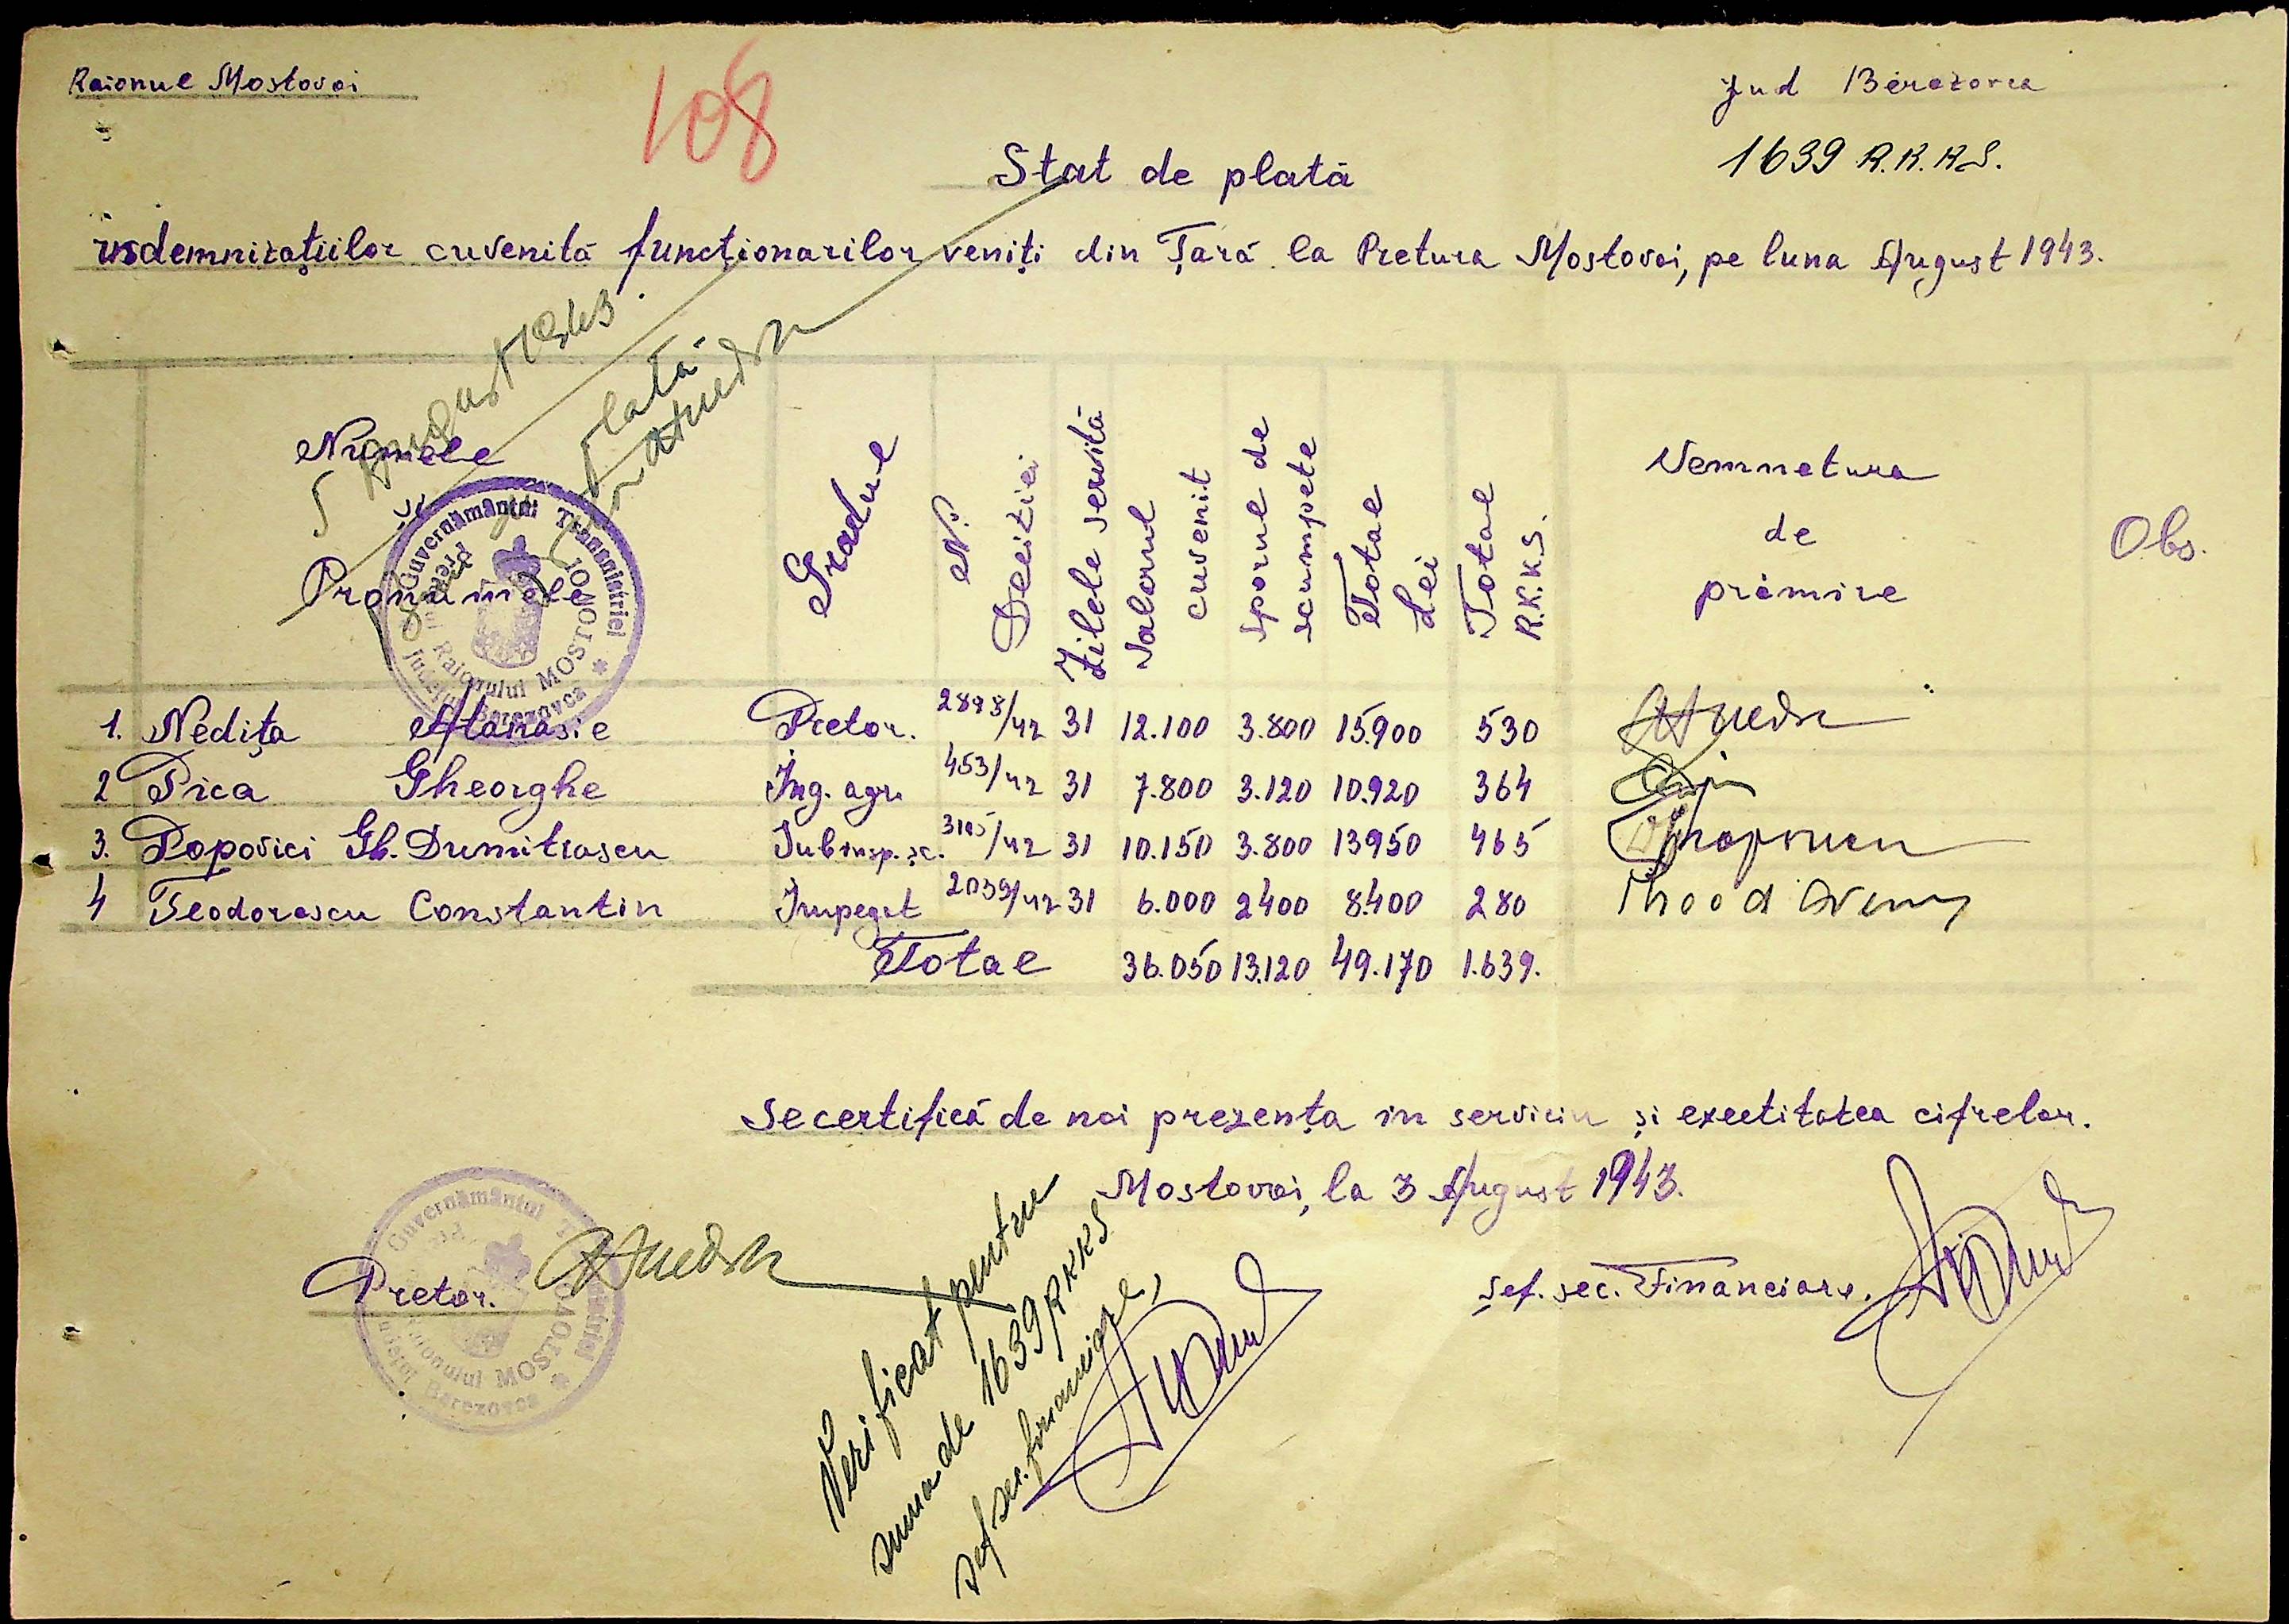 Raionul Mostovoi
108
Jud Berezovca
1639 R.K.K.S.
Stat de plată
indemnizațiilor cuvenită funcționarilor veniți din Țară la Pretura Mostovoi, pe luna August 1943.
5 August 1943.
plată
Numele
și
Pronumele
Gradul
Nr. Deciziei
Zilele servită
Salarul cuvenit
Sporul de scumpete
Total Lei
Total R.K.K.S.
Semnetura
de
primire
Obs.
Guvernământul Transnistriei
Județul Berezovca
Raionului MOSTOVOI
1. Nedița Atanasie Pretor. 2898/42 31 12.100 3.800 15.900 530
2 Pica Gheorghe Ing. agr. 453/42 31 7.800 3.120 10.920 364
3. Popovici Gh. Dumitrascu Subinsp. șc. 3105/42 31 10.150 3.800 13950 465
4 Teodorescu Constantin Impegat 2039/42 31 6.000 2400 8.400 280
Total 36.050 13.120 49.170 1.639.
Se certifică de noi prezența in serviciu și exectitatea cifrelor.
Mostovoi, la 3 August 1943.
Pretor.
Șef. sec. Financiare.
Guvernământul
Raionului MOSTOVOI
Județul Berezovca
Verificat pentru
suma de 1639 RKKS
Șef sec. financiare,